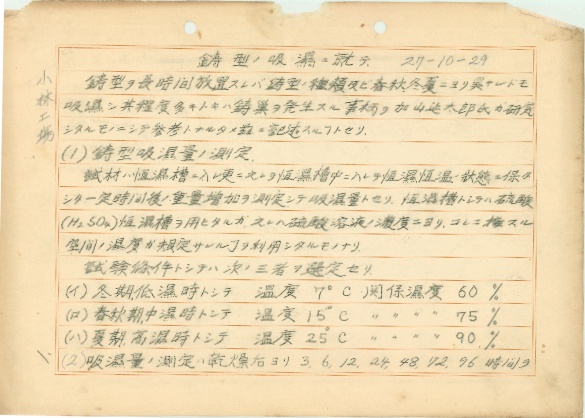 鋳型ノ吸濕ニ就テ 27-10-29
鋳型ヲ長時間放置スレバ鋳型ノ種類及ビ春秋冬夏ニヨリ異ナレドモ
吸濕シ其程度多キトキハ鋳巣ヲ発生スル事柄ヲ加山延太郎氏ガ研究
シタルモノニシテ参考トナルタメ茲ニ記述スルコトセリ
(1) 鋳型吸濕量ノ測定.
試材ハ恒濕槽ニ入レ更ニ之レヲ恒温槽中ニ入レテ恒濕恒温ノ状態ニ保タ
シメ一定時間後ノ重量増加ヲ測定シテ吸濕量トセリ. 恒濕槽トシテハ硫酸
(H₂SO₄)恒濕槽ヲ用ヒタルガ之レハ硫酸溶液ノ濃度ニヨリ、コレニ接スル
空間ノ濕度ガ規定サレルヿヲ利用シタルモノナリ.
試験條件トシテハ次ノ三者ヲ選定セリ
(イ) 冬期低濕時トシテ 温度 7°C 関係濕度 60 %
(ロ) 春秋期中濕時トシテ 温度 15°C 〃 〃 〃 〃 75 %
(ハ) 夏期高濕時トシテ 温度 25°C 〃 〃 〃 〃 90 %
(2) 吸濕量ノ測定ハ乾燥后ヨリ 3, 6, 12, 24, 48, 72, 96 時間ヲ
小林工場